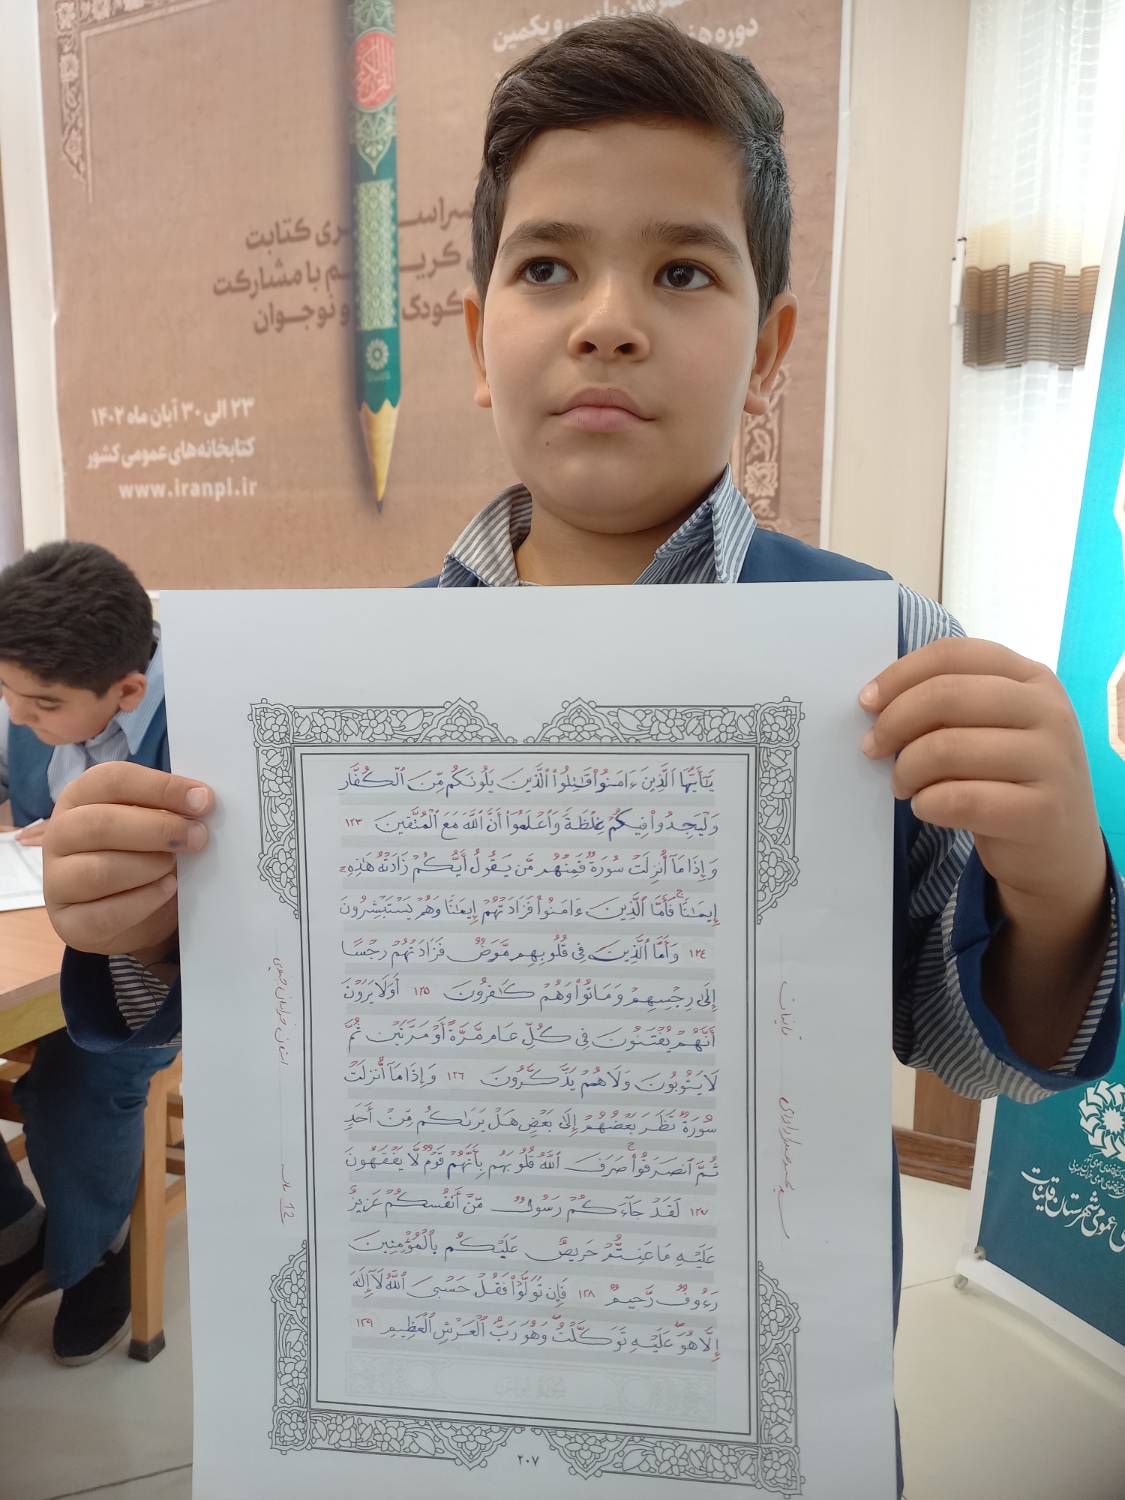 دوره هن
و یکمین
سراسری کتابت
کریم با مشارکت
کودک و نوجوان
۲۳ الی ۳۰ آبان ماه ۱۴۰۲
کتابخانه‌های عمومی کشور
www.iranpl.ir
يَٰٓأَيُّهَا ٱلَّذِينَ ءَامَنُوا۟ قَٰتِلُوا۟ ٱلَّذِينَ يَلُونَكُم مِّنَ ٱلْكُفَّارِ
وَلْيَجِدُوا۟ فِيكُمْ غِلْظَةً وَٱعْلَمُوٓا۟ أَنَّ ٱللَّهَ مَعَ ٱلْمُتَّقِينَ ١٢٣
وَإِذَا مَآ أُنزِلَتْ سُورَةٌ فَمِنْهُم مَّن يَقُولُ أَيُّكُمْ زَادَتْهُ هَٰذِهِۦٓ
إِيمَٰنًا ۚ فَأَمَّا ٱلَّذِينَ ءَامَنُوا۟ فَزَادَتْهُمْ إِيمَٰنًا وَهُمْ يَسْتَبْشِرُونَ
١٢٤ وَأَمَّا ٱلَّذِينَ فِى قُلُوبِهِم مَّرَضٌ فَزَادَتْهُمْ رِجْسًا
إِلَىٰ رِجْسِهِمْ وَمَاتُوا۟ وَهُمْ كَٰفِرُونَ ١٢٥ أَوَلَا يَرَوْنَ
أَنَّهُمْ يُفْتَنُونَ فِى كُلِّ عَامٍ مَّرَّةً أَوْ مَرَّتَيْنِ ثُمَّ
لَا يَتُوبُونَ وَلَا هُمْ يَذَّكَّرُونَ ١٢٦ وَإِذَا مَآ أُنزِلَتْ
سُورَةٌ نَّظَرَ بَعْضُهُمْ إِلَىٰ بَعْضٍ هَلْ يَرَىٰكُم مِّنْ أَحَدٍ
ثُمَّ ٱنصَرَفُوا۟ ۚ صَرَفَ ٱللَّهُ قُلُوبَهُم بِأَنَّهُمْ قَوْمٌ لَّا يَفْقَهُونَ
١٢٧ لَقَدْ جَآءَكُمْ رَسُولٌ مِّنْ أَنفُسِكُمْ عَزِيزٌ
عَلَيْهِ مَا عَنِتُّمْ حَرِيصٌ عَلَيْكُم بِٱلْمُؤْمِنِينَ
رَءُوفٌ رَّحِيمٌ ١٢٨ فَإِن تَوَلَّوْا۟ فَقُلْ حَسْبِىَ ٱللَّهُ لَآ إِلَٰهَ
إِلَّا هُوَ ۖ عَلَيْهِ تَوَكَّلْتُ ۖ وَهُوَ رَبُّ ٱلْعَرْشِ ٱلْعَظِيمِ ١٢٩
۲۰۷
استان خراسان جنوبی
12 سالت
قاینات
عمومی شهرستان قاینات